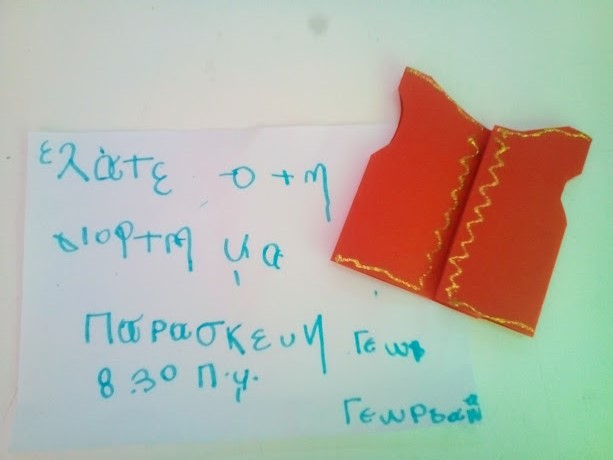 ελάτε σ τη
γιορτη μα
Παρασκευη Γεωρ
8.30 π.μ.
Γεωργαᾶν